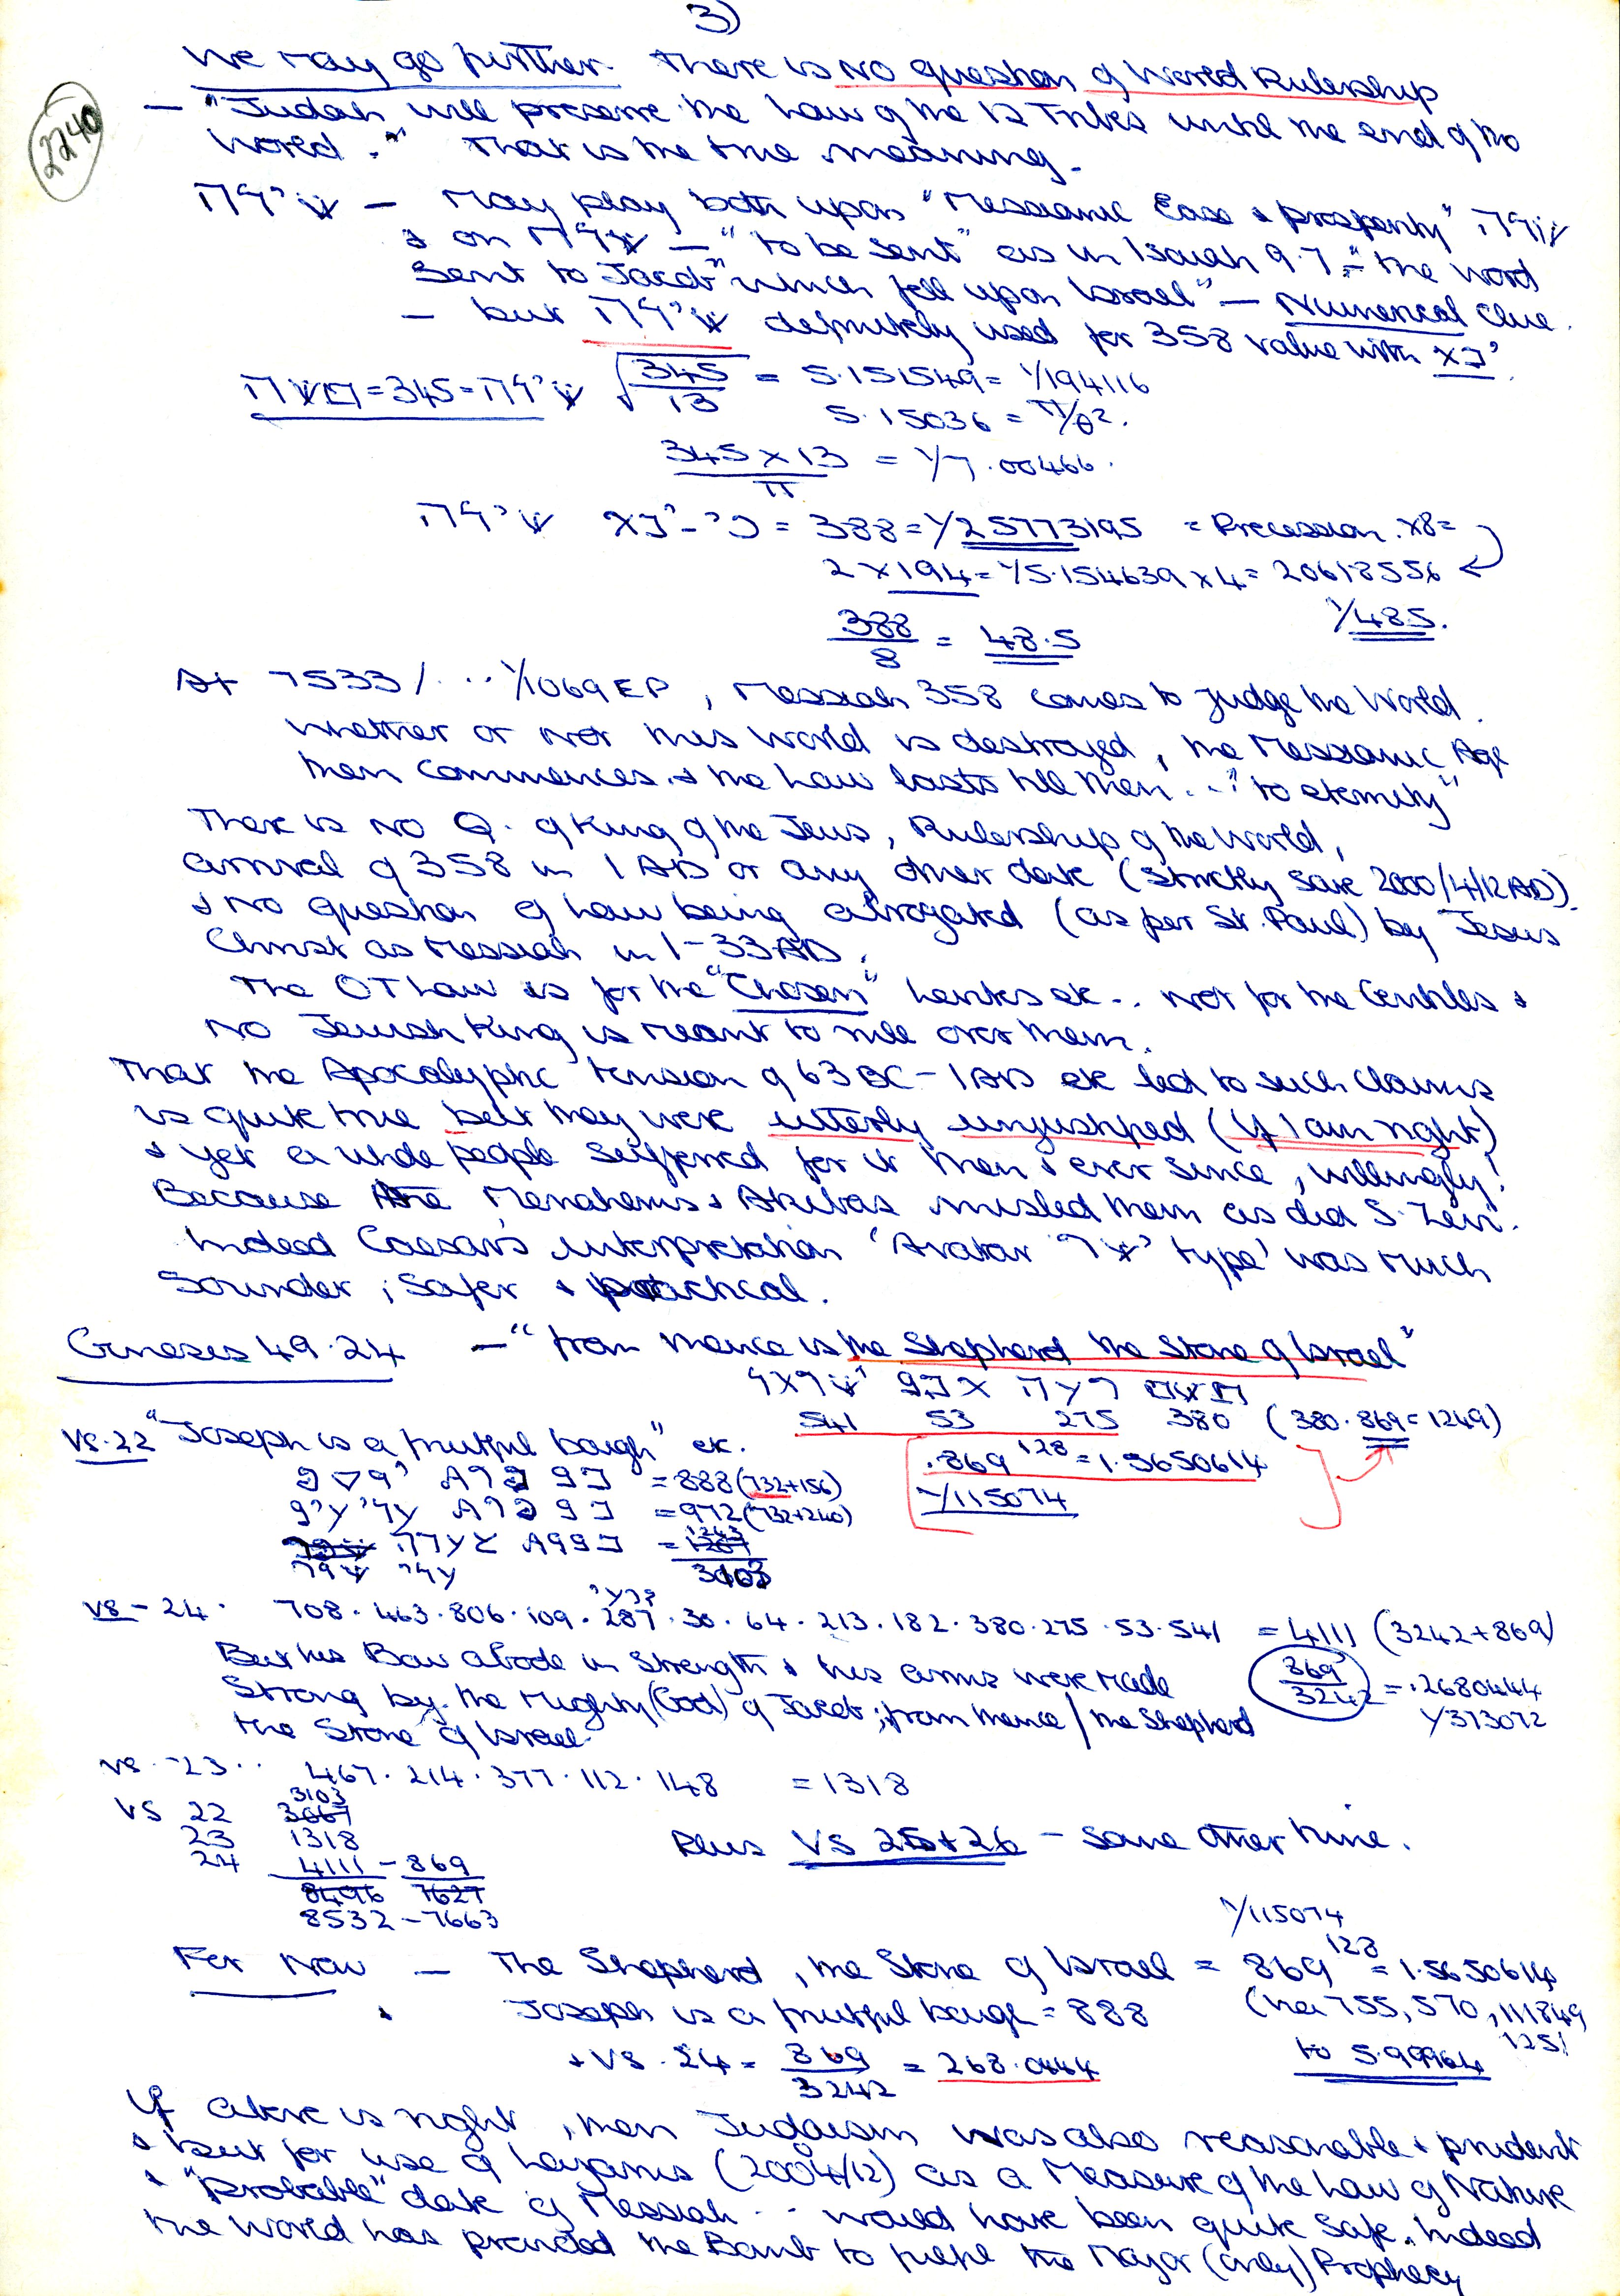 3)
2240
We may go further. There is no question of World Rulership
— "Judah will preserve the Law of the 12 Tribes until the end of the
World." That is the true meaning.
— May play both upon "Messianic Ease & prosperity"
& on — "to be sent" as in Isaiah 9.7 - "the word
sent to Jacob" which fell upon Israel" — Numerical Clue.
— but definitely used for 358 value with
= 345 = √345/13 = 5.151549 = 1/194116
5.15036 = π/θ².
345 x 13 / π = 1/7.00466.
= 388 = 1/25773195 = Precession. x8 =
2 x 194 = 1/5.154639 x 4 = 20618556
1/485.
388/8 = 48.5
At 7533/... 1/1069 EP, Messiah 358 comes to judge the World.
Whether or not this World is destroyed, the Messianic Age
then commences & the Law lasts till then... "to eternity"
There is no Q. of King of the Jews, Rulership of the World,
arrival of 358 in 1 AD or any other date (strictly save 2000/4/12 AD)
& no question of Law being abrogated (as per St. Paul) by Jesus
Christ as Messiah in 1-33 AD.
The OT Law is for the "Chosen" Levites etc.. not for the Gentiles &
no Jewish King is meant to rule over them.
That the Apocalyptic tension of 63 BC - 1 AD etc led to such claims
is quite true but they were utterly unjustified (if I am right)
& yet a whole people suffered for it then & ever since, willingly!
Because the Menahems & Akibas misled them as did S. Zevi.
Indeed Caesar's interpretation 'Avatar type' was much
sounder, safer & practical.
Genesis 49.24 — "from thence is the Shepherd the Stone of Israel"
541 53 275 380 (380.869 = 1249)
vs. 22 "Joseph is a fruitful bough" etc.
.869 128 = 1.5650614
= 888 (732+156)
1/115074
= 972 (732+240)
1243
3103
vs - 24. 708.463.806.109.287.30.64.213.182.380.275.53.541 = 4111 (3242+869)
But his Bow abode in Strength & his arms were made
Strong by the Mighty (God) of Jacob; from thence / the Shepherd
the Stone of Israel.
869/3242 = .2680444
1/373072
vs - 23.. 467.214.377.112.148 = 1318
3103
VS 22 3067
23 1318
24 4111 - 869
8496 7627
8532 - 7663
Plus VS 25+26 — some other time.
1/115074
For Now — The Shepherd, the Stone of Israel = 869 128 = 1.5650614
& Joseph is a fruitful bough = 888 (hei 755, 570, 111849
1251
+ VS. 24 = 869/3242 = 268.0444 to 5.99964
If above is right, then Judaism was also reasonable & prudent
& but for use of (2004/12) as a Measure of the Law of Nature
& "Probable" date of Messiah.. would have been quite safe. Indeed
the World has provided the Bomb to fulfil the Major (only) Prophecy